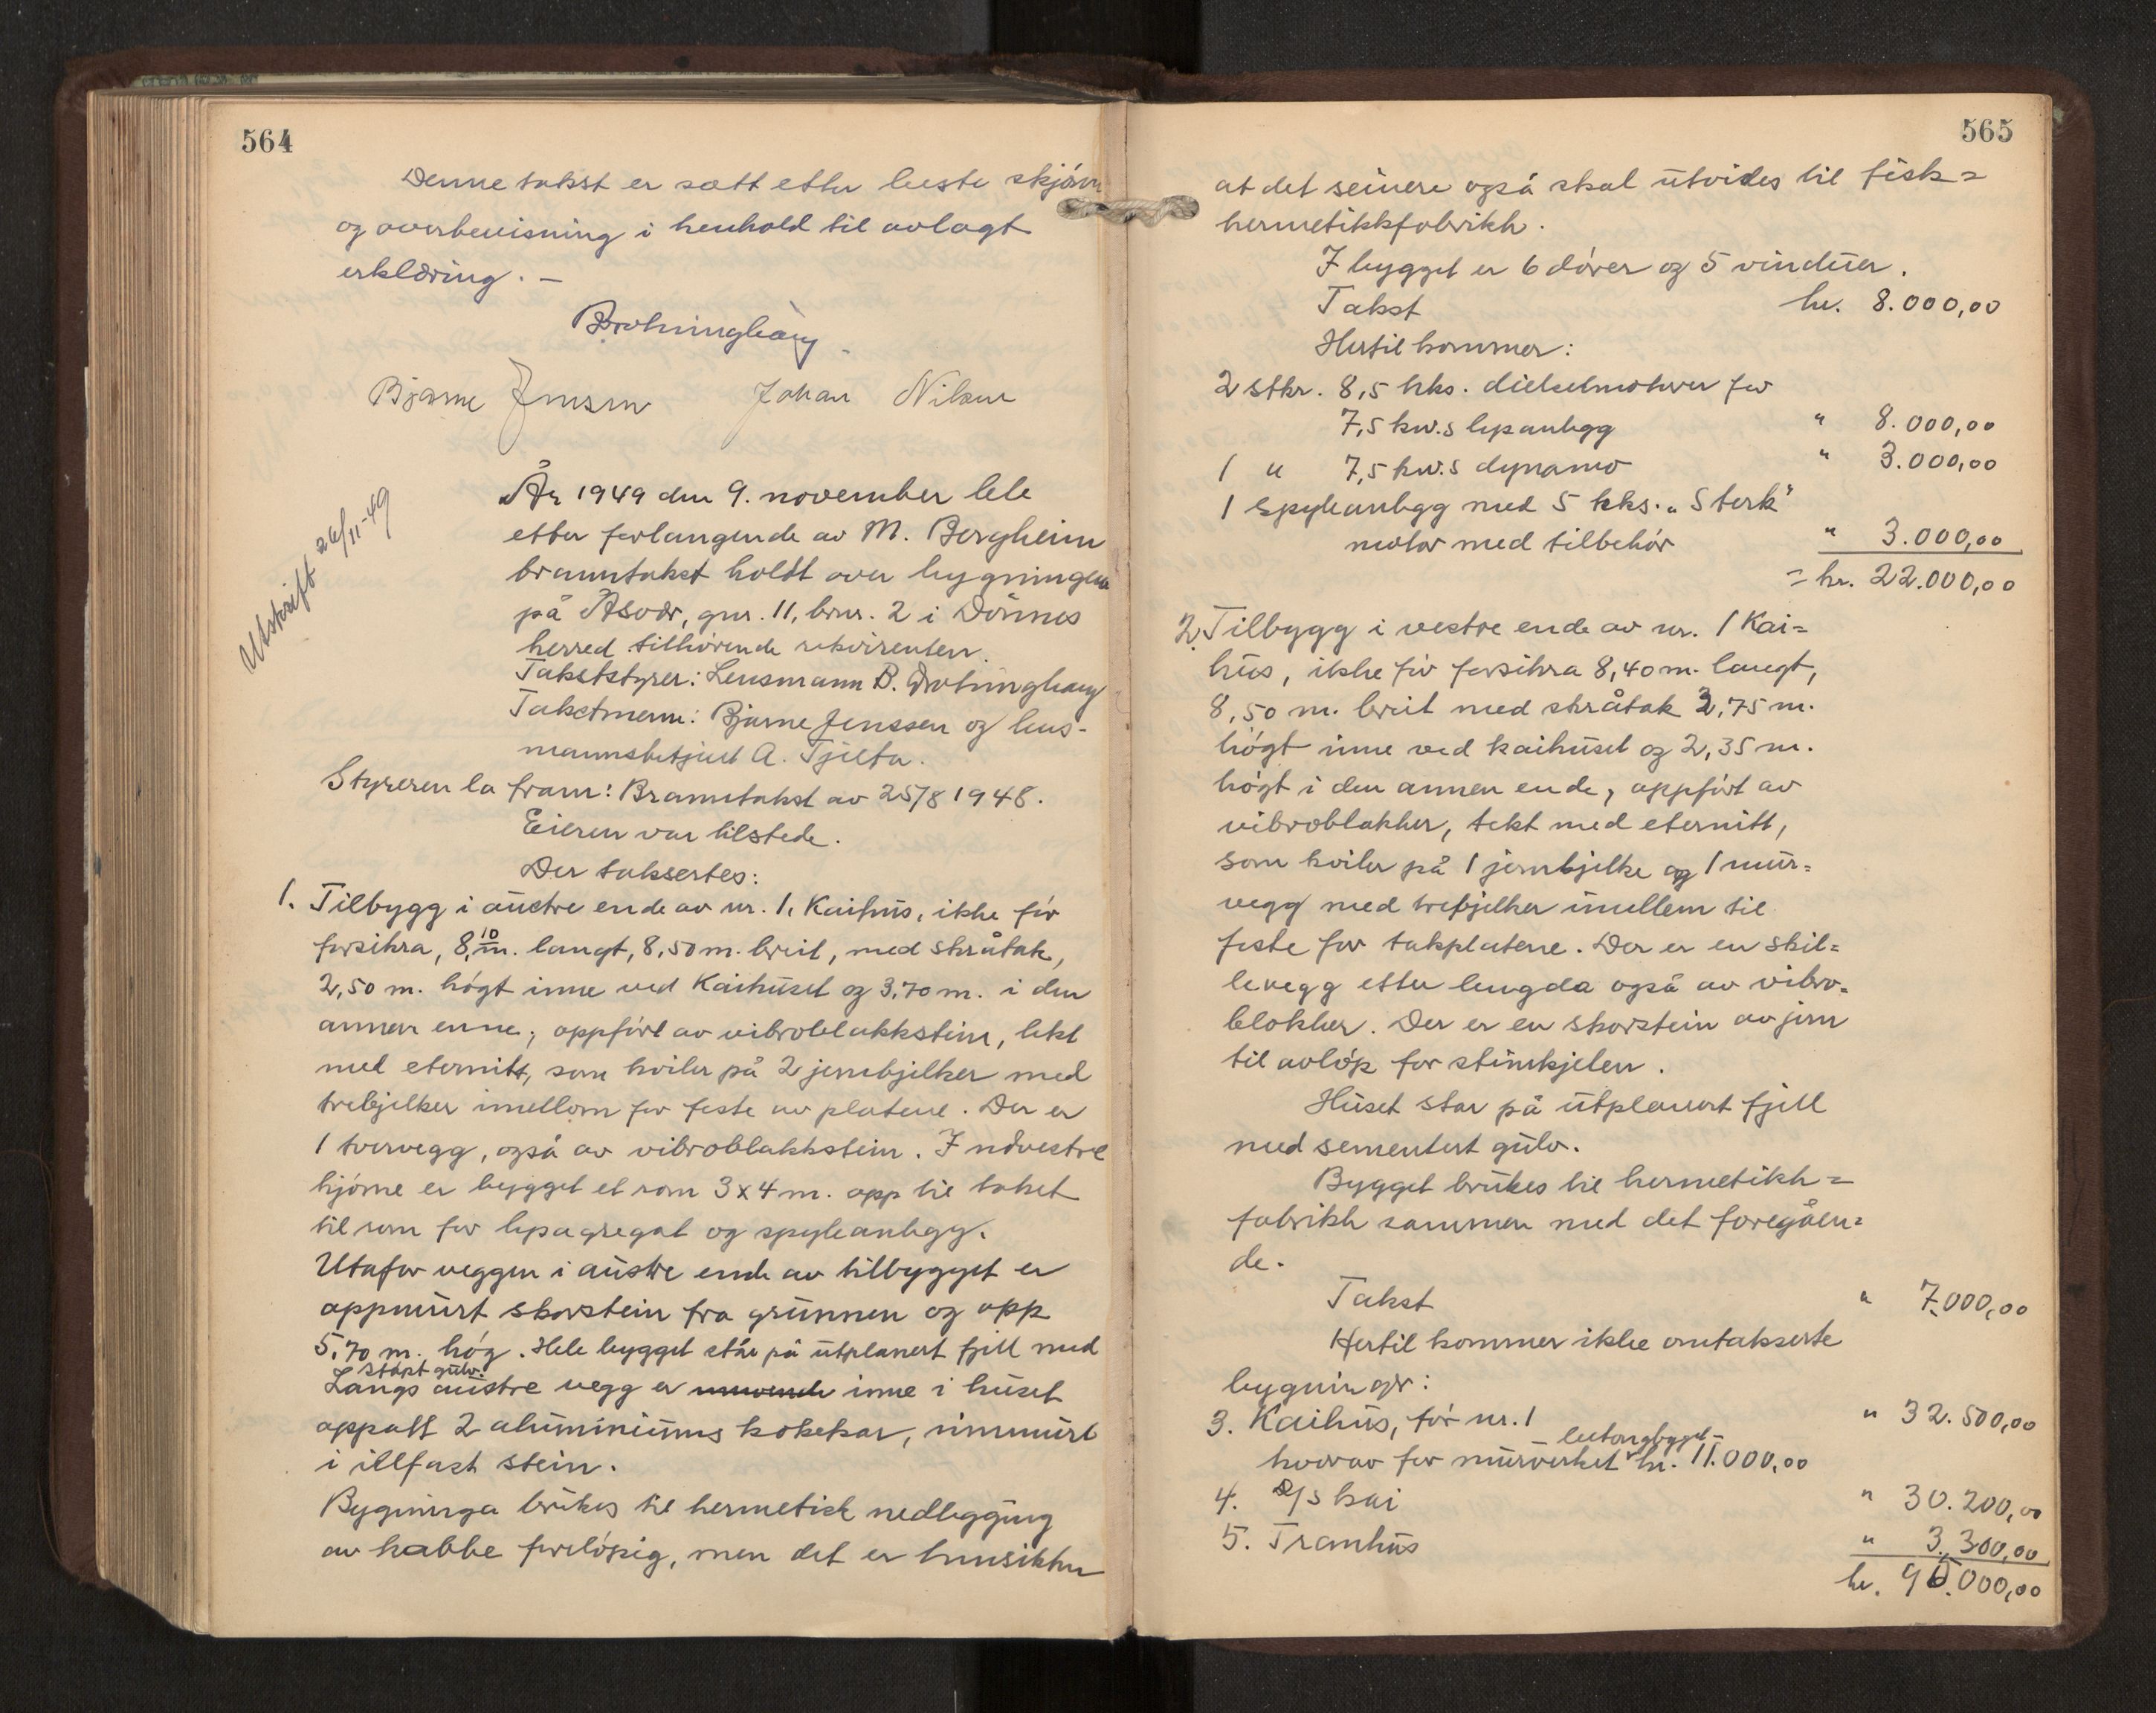 564
Denne takst er satt etter beste skjønn
og overbevisning i henhold til avlagt
erklæring. –
Bjarne Jenssen Johan Nilsen
Utskrift 26/11-49
År 1949 den 9. november ble
etter forlangende av M. Bergheim
branntakst holdt over bygningene
på Åsvær, gnr. 11, brnr. 2 i Dønnes
herred tilhørende rekvirenten.
Takststyrer: Lensmann B.
Takstmenn: Bjarne Jenssen og lens-
mannsbetjent A. Tjelta.
Styreren la fram: Branntakst av 25/8 1948.
Eieren var tilstede.
Der taksertes:
1. Tilbygg i austre ende av nr. 1, Kaihus, ikke før
forsikra, 8,10 m. langt, 8,50 m. breit, med skråtak,
2,50 m. høgt inne ved Kaihuset og 3,70 m. i den
annen enne, oppført av vibroblokkstein, tekt
med eternitt, som hviler på 2 jernbjelker med
trebjelker imellom for feste av platene. Der er
1 tvervegg, også av vibroblokkstein. I ndvestre
hjørne er bygget et rom 3x4 m. opp til taket
til rom for lysagregat og spyleanlegg.
Utafor veggen i austre ende av tilbygget er
oppmurt skorstein fra grunnen og opp
5,70 m. høg. Hele bygget står på utplanert fjell med
støpt gulv.
Langs austre vegg er inne i huset
oppsatt 2 aluminiums kokekar, innmurt
i ildfast stein.
Bygninga brukes til hermetisk nedlegging
av krabbe foreløpig, men det er hensikten
565
at det seinere også skal utvides til fisk=
hermetikkfabrikk.
I bygget er 6 dører og 5 vinduer.
Takst kr. 8.000,00
Hertil kommer:
2 stkr. 8,5 hks. dieselmotorer for
7,5 kw.s lysanlegg " 8.000,00
1 " 7,5 kw.s dynamo " 3.000,00
1 spyleanlegg med 5 hks. „Sterk"
motor med tilbehør " 3.000,00
= kr. 22.000,00
2. Tilbygg i vestre ende av nr. 1 Kai=
hus, ikke før forsikra 8,40 m. langt,
8,50 m. breit med skråtak 3,75 m.
høgt inne ved kaihuset og 2,35 m.
høgt i den annen ende, oppført av
vibroblokker, tekt med eternitt,
som hviler på 1 jernbjelke og 1 mur=
vegg med trebjelker imellem til
feste for takplatene. Der er en skil=
levegg etter lengda også av vibro=
blokker. Der er en skorstein av jern
til avløp for stimkjelen.
Huset står på utplanert fjell
med sementert gulv.
Bygget brukes til hermetikk=
fabrikk sammen med det foregåen=
de.
Takst " 7.000,00
Hertil kommer ikke omtakserte
bygninger:
3. Kaihus, før nr. 1 " 32.500,00
hvorav for murverket betongbygget kr. 11.000,00
4. D/s kai " 30.200,00
5. Tranhus " 3.300,00
kr. 95.000,00